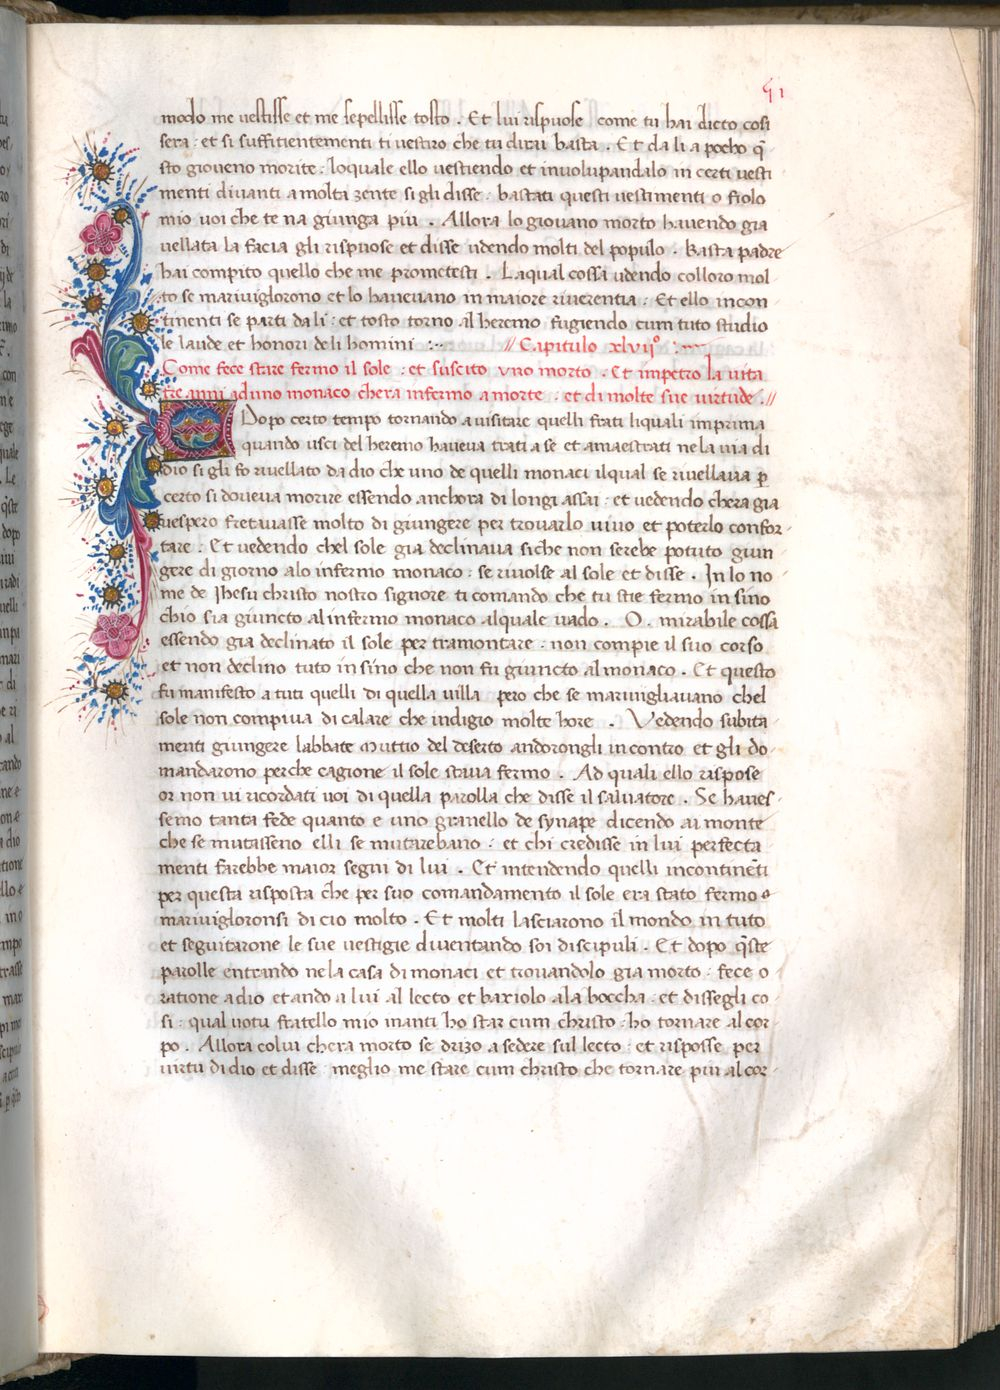 51
modo me uestisse et me sepellisse tosto . Et lui rispuose come tu hai dicto cosi
sera : et si sufficientementi ti uestiro che tu dirai basta . Et da li a pocho q̄
sto gioueno morite : loquale ello uestiendo et inuolupandalo in certi uesti
menti diuanti a molta zente si gli disse : bastati questi uestimenti o fiolo
mio uoi che te na giunga piu . Allora lo giouano morto hauendo gia
uellata la facia gli rispuose et disse udendo molti del populo . Basta padre
hai compito quello che me prometesti . Laqual cossa udendo colloro mol
to se mariuiglorono et lo haueuano in maiore riuerentia : Et ello incon
tinenti se parti da li : et tosto torno al heremo fugiendo cum tuto studio
le laude et honori de li homini : // Capitulo xlvijº :
Come fece stare fermo il sole : et suscito uno morto . Et impetro la uita
tre anni ad uno monaco chera infermo a morte : et di molte sue uirtude . //
Dopo certo tempo tornando a uisitare quelli frati liquali imprima
quando usci del heremo haueua trati a se et amaestrati ne la uia di
dio si gli fo riuellato da dio che uno de quelli monaci ilqual se riuellaua p̄
certo si doueua morire essendo anchora di longi assai : et uedendo chera gia
uespero fretauasse molto di giungere per trouarlo uiuo et poterlo confor-
tare : Et uedendo chel sole gia declinaua siche non serebe potuto giun
gere di giorno alo infermo monaco : se riuolse al sole et disse . In lo no
me de Jhesu christo nostro signore ti comando che tu stie fermo in sino
chio sia giuncto al infermo monaco alquale uado . O . mirabile cossa
essendo gia declinato il sole per tramontare : non compie il suo corso
et non declino tuto in sino che non fu giuncto al monaco . Et questo
fu manifesto a tuti quelli di quella uilla pero che se mariuigliauano chel
sole non compiua di calare che indigio molte hore . Vedendo subita
menti giungere labbate Mutio del deserto andorongli incontro et gli do
mandarono perche cagione il sole staua fermo . Ad quali ello rispose
or non ui ricordati uoi di quella parolla che disse il saluatore . Se haues
semo tanta fede quanto e uno granello de synape dicendo ai monte
che se mutasseno elli se mutarebano : et chi credisse in lui perfecta
menti farebbe maior segni di lui . Et intendendo quelli incontinēti
per questa risposta che per suo comandamento il sole era stato fermo
mariuigloronsi di cio molto . Et molti lasciarono il mondo in tuto
et seguitarone le sue uestigie diuentando soi discipuli . Et dopo q̄ste
parolle entrando ne la casa di monaci et trouandolo gia morto : fece o
ratione a dio et ando a lui al lecto et baxiolo a la boccha : et dissegli co
si : qual uotu fratello mio inanti ho star cum christo : ho tornare al cor
po . Allora colui chera morto se drizo a sedere sul lecto : et risposse per
uirtu di dio et disse : meglio me stare cum christo che tornare piu al cor-